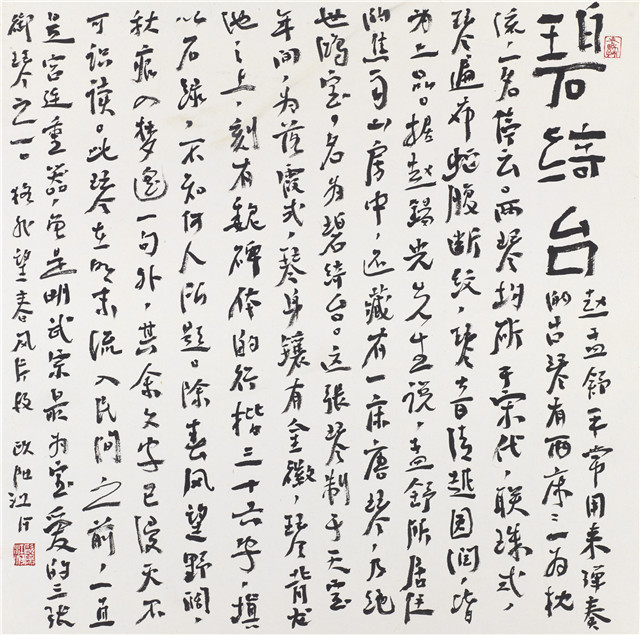 碧绮台
赵孟舒平常用来弹奏
的古琴有两床：一为枕
流，一名停云。两琴均斫于宋代，联珠式，
琴遍布蛇腹断纹，琴音清越圆润，皆
为上品。据赵锡光先生说，孟舒所居住
的焦雨山房中，还藏有一床唐琴，乃绝
世鸿宝，名为碧绮台。这张琴制于天宝
年间，为落霞式，琴身镶有金徽，琴背龙
池之上，刻有魏碑体的行楷三十六字，填
以石绿，不知何人所题。除春风望野阔，
秋痕入梦遥一句外，其余文字已漫灭不
可识读。此琴在明末流入民间之前，一直
是宫廷重器，更是明武宗最为宝爱的三张
御琴之一。格非望春风片段 欧阳江河